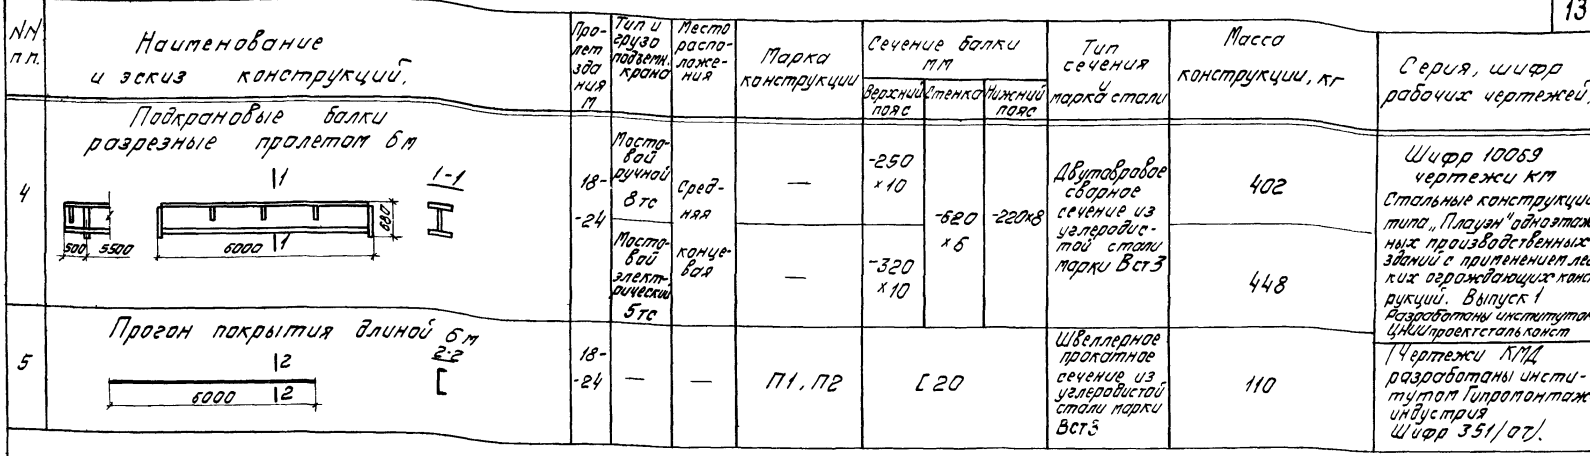 13
NN
п п.
Наименование
и эскиз конструкций.
Про-
лет
зда
ния
м
Тип и
грузо
подъемн.
крана
Место
распо-
ложе-
ния
Марка
конструкции
Сечение балки
мм
Верхний
пояс
Стенка
Нижний
пояс
Тип
сечения
и
марка стали
Масса
конструкции, кг
Серия, шифр
рабочих чертежей.
4
Подкрановые балки
разрезные пролетом 6м
1
1
1-1
500
5500
6000
680
18-
-24
Мосто-
вой
ручной
8тс
Мосто-
вой
электри-
ческий
5тс
Сред-
няя
конце-
вая
—
—
-250
×10
-320
×10
-620
×6
-220×8
Двутавровое
сварное
сечение из
углеродис-
той стали
марки Вст3
402
448
Шифр 10069
чертежи КМ
Стальные конструкции
типа „Плауэн" одноэтаж
ных производственных
зданий с применением лег
ких ограждающих конст
рукций. Выпуск 1
Разработаны институтом
ЦНИИпроектстальконст
5
Прогон покрытия длиной 6м
2
2
2-2
6000
18-
-24
—
—
П1, П2
[ 20
Швеллерное
прокатное
сечение из
углеродистой
стали марки
Вст3
110
(Чертежи КМД
разработаны инсти-
тутом Гипромонтаж
индустрия
Шифр 351/07).